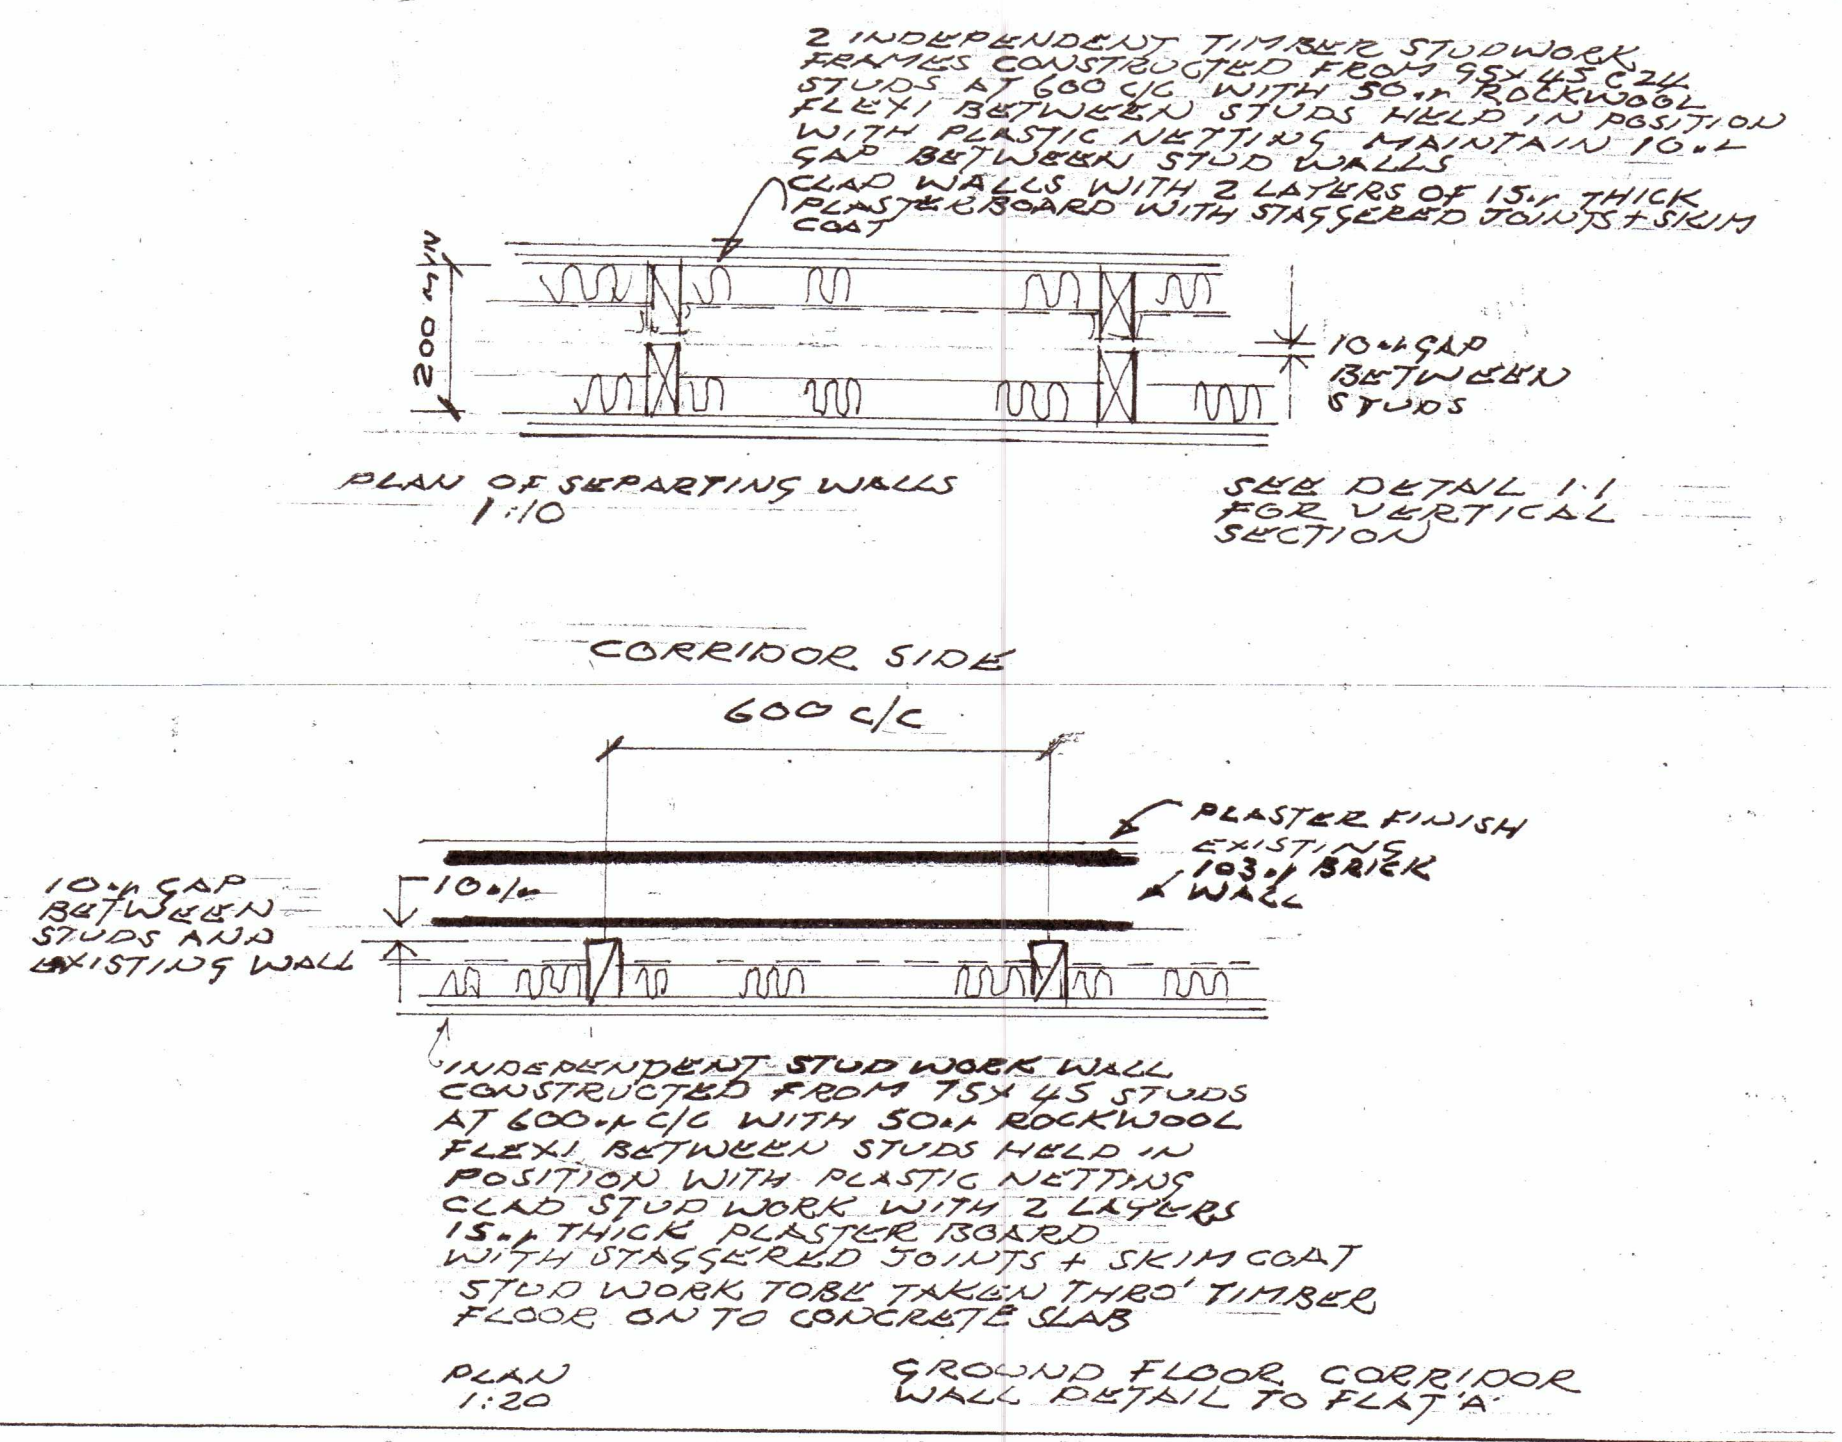 2 INDEPENDENT TIMBER STUDWORK
FRAMES CONSTRUCTED FROM 95X45 C24
STUDS AT 600 C/C WITH 50mm ROCKWOOL
FLEXI BETWEEN STUDS HELD IN POSITION
WITH PLASTIC NETTING MAINTAIN 10mm
GAP BETWEEN STUD WALLS
CLAD WALLS WITH 2 LAYERS OF 15mm THICK
PLASTERBOARD WITH STAGGERED JOINTS + SKIM
COAT
200mm MIN
10mm GAP
BETWEEN
STUDS
PLAN OF SEPARTING WALLS
1:10
SEE DETAIL 1.1
FOR VERTICAL
SECTION
CORRIDOR SIDE
600 C/C
PLASTER FINISH
EXISTING
103mm BRICK
WALL
10mm GAP
BETWEEN
STUDS AND
EXISTING WALL
10mm
INDEPENDENT STUD WORK WALL
CONSTRUCTED FROM 75X45 STUDS
AT 600mm C/C WITH 50mm ROCKWOOL
FLEXI BETWEEN STUDS HELD IN
POSITION WITH PLASTIC NETTING
CLAD STUD WORK WITH 2 LAYERS
15mm THICK PLASTER BOARD
WITH STAGGERED JOINTS + SKIM COAT
STUD WORK TOBE TAKEN THRO' TIMBER
FLOOR ON TO CONCRETE SLAB
PLAN
1:20
GROUND FLOOR CORRIDOR
WALL DETAIL TO FLAT 'A'